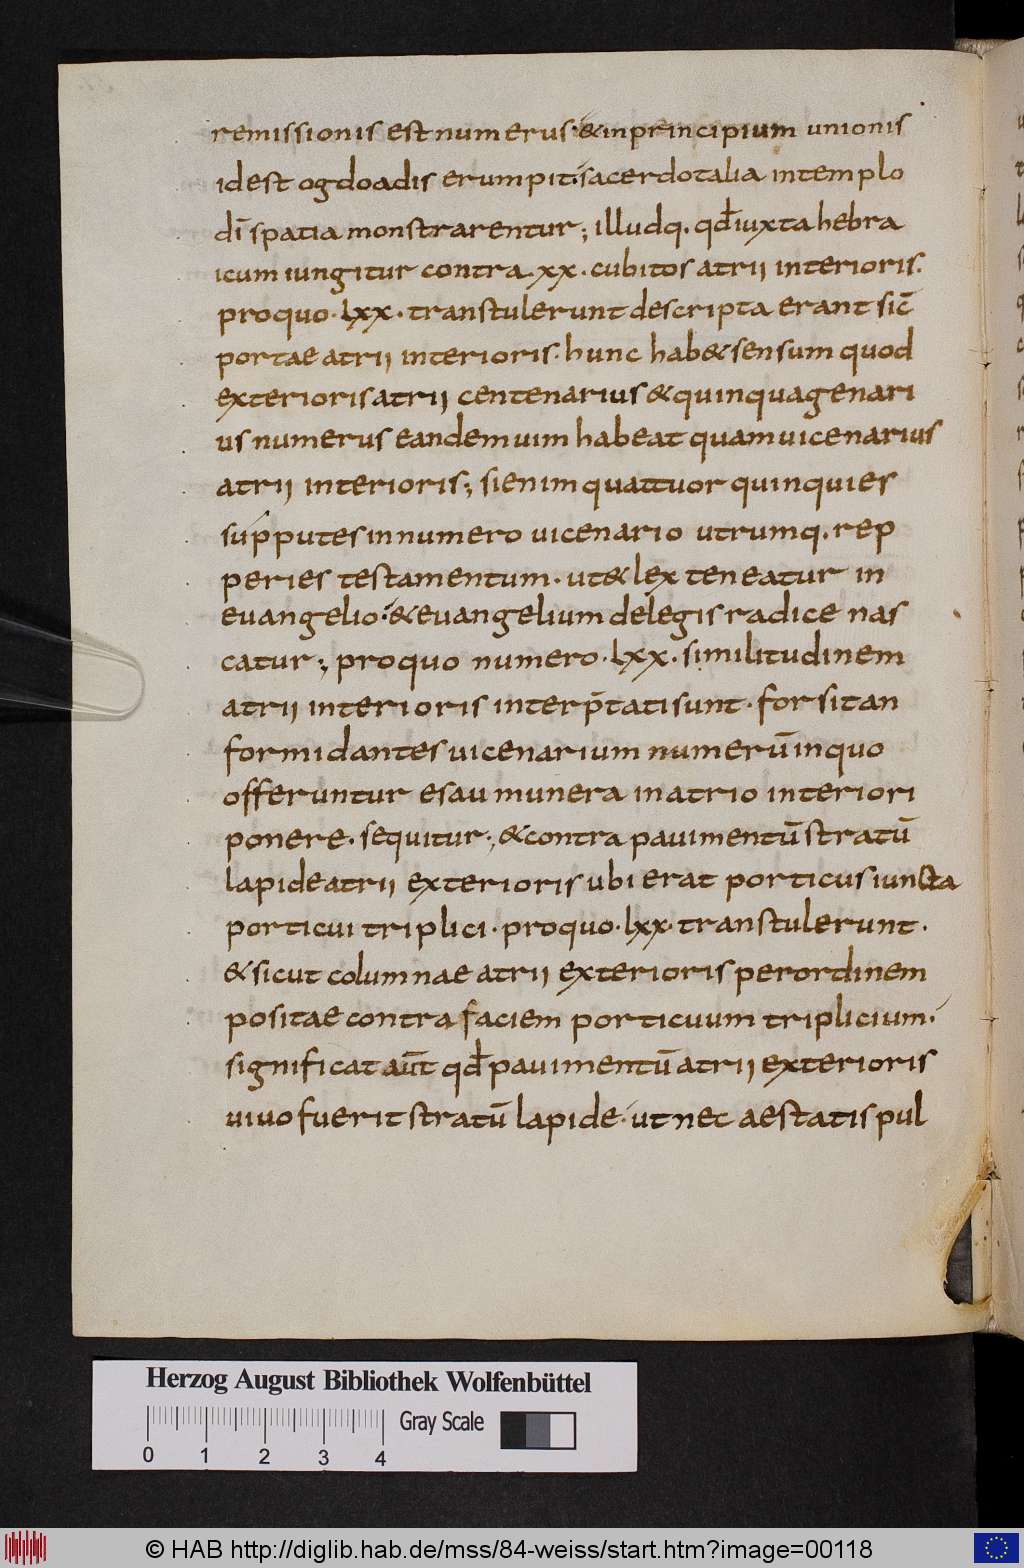 remissionis est numerus· & inprincipium unionis
idest ogdoadis erumpit· sacerdotalia intemplo
dī spatia monstrarentur; illudq. qđ iuxta hebra
icum iungitur contra· xx · cubitos atrii interioris.
proquo· lxx· transtulerunt descripta erant sic̄
portae atrii interioris· hunc hab& sensum quod
exterioris atrii centenarius & quinquagenari
us numerus eandem uim habeat quam uicenarius
atrii interioris; si enim quattuor quinquies
supputes innumero uicenario utrumq. rep
peries testamentum· ut & lex teneatur in
euangelio· & euangelium delegis radice nas
catur; proquo numero· lxx· similitudinem
atrii interioris interp̄tati sunt· forsitan
formidantes uicenarium numerū inquo
offeruntur esau munera inatrio interiori
ponere· sequitur; & contra pauimentū stratū
lapide atrii exterioris ubi erat porticus iuncta
porticui triplici· proquo· lxx· transtulerunt·
& sicut columnae atrii exterioris perordinem
positae contra faciem porticuum triplicium·
significat aūt qđ pauimentū atrii exterioris
uiuo fuerit stratū lapide· ut nec aestatis pul
Herzog August Bibliothek Wolfenbüttel
Gray Scale
0 1 2 3 4
© HAB http://diglib.hab.de/mss/84-weiss/start.htm?image=00118